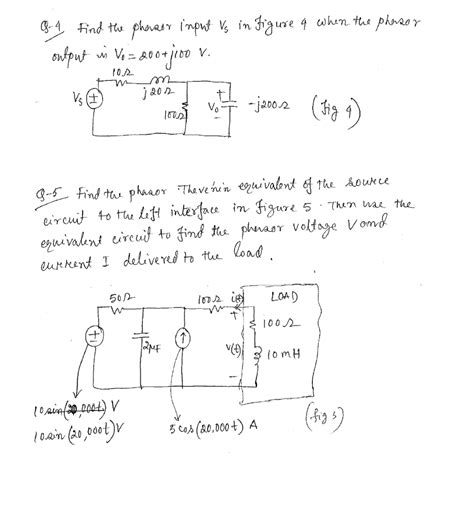 Q-4 Find the phasor input Vs in Figure 4 when the phasor
output is Vo = 200+j100 V.
10Ω
j20Ω
Vs
100Ω
+
Vo
-
-j200Ω
(Fig 4)
Q-5 Find the phasor Thevenin equivalent of the source
circuit to the left interface in Figure 5. Then use the
equivalent circuit to find the phasor voltage V and
current I delivered to the load.
50Ω
100Ω
i(t)
LOAD
+
100Ω
2μF
v(t)
10mH
-
10 sin(20,000t) V
10 sin (20,000t) V
5 cos (20,000t) A
(fig 5)